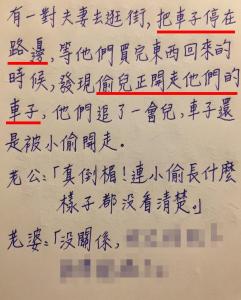 有一對夫妻去逛街,把車子停在
路邊,等他們買完東西回來的
時候,發現偷兒正開走他們的
車子,他們追了一會兒,車子還
是被小偷開走。
老公:「真倒楣!連小偷長什麼
樣子都沒看清楚。」
老婆:「沒關係,